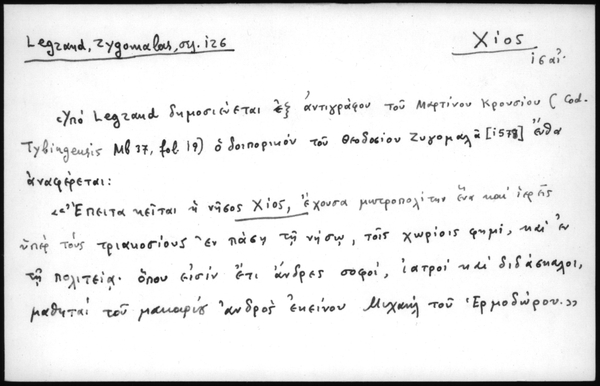 Legrand, Zygomalas, σημ. 126
Χίος
16 αἰ.
«Ὑπό Legrand δημοσιεύεται ἐξ ἀντιγράφου τοῦ Μαρτίνου Κρουσίου (Cod.
Tybingensis Mb 37, fol. 19) ὁδοιπορικόν τοῦ Θεοδοσίου Ζυγομαλᾶ [1578] ἔνθα
ἀναφέρεται:
«Ἔπειτα κεῖται ἡ νῆσος Χίος, ἔχουσα μητροπολίτην ἕνα καί ἱερεῖς
ὑπέρ τούς τριακοσίους ἐν πάσῃ τῇ νήσῳ, τοῖς χωρίοις φημί, καί ἐν
τῇ πολιτείᾳ· ὅπου εἰσίν ἔτι ἄνδρες σοφοί, ἰατροί καί διδάσκαλοι,
μαθηταί τοῦ μακαρίου ἀνδρός ἐκείνου Μιχαήλ τοῦ Ἑρμοδώρου.»